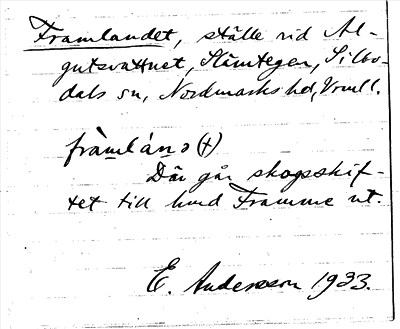 Framlandet, ställe vid Al-
gutsvattnet, Slämtegen, Silbo-
dals sn, Nordmarks hd, Vrml.
fràmlánə(t)
Där går skogsskif-
tet till hmd Framme ut.
E. Andersson 1933.